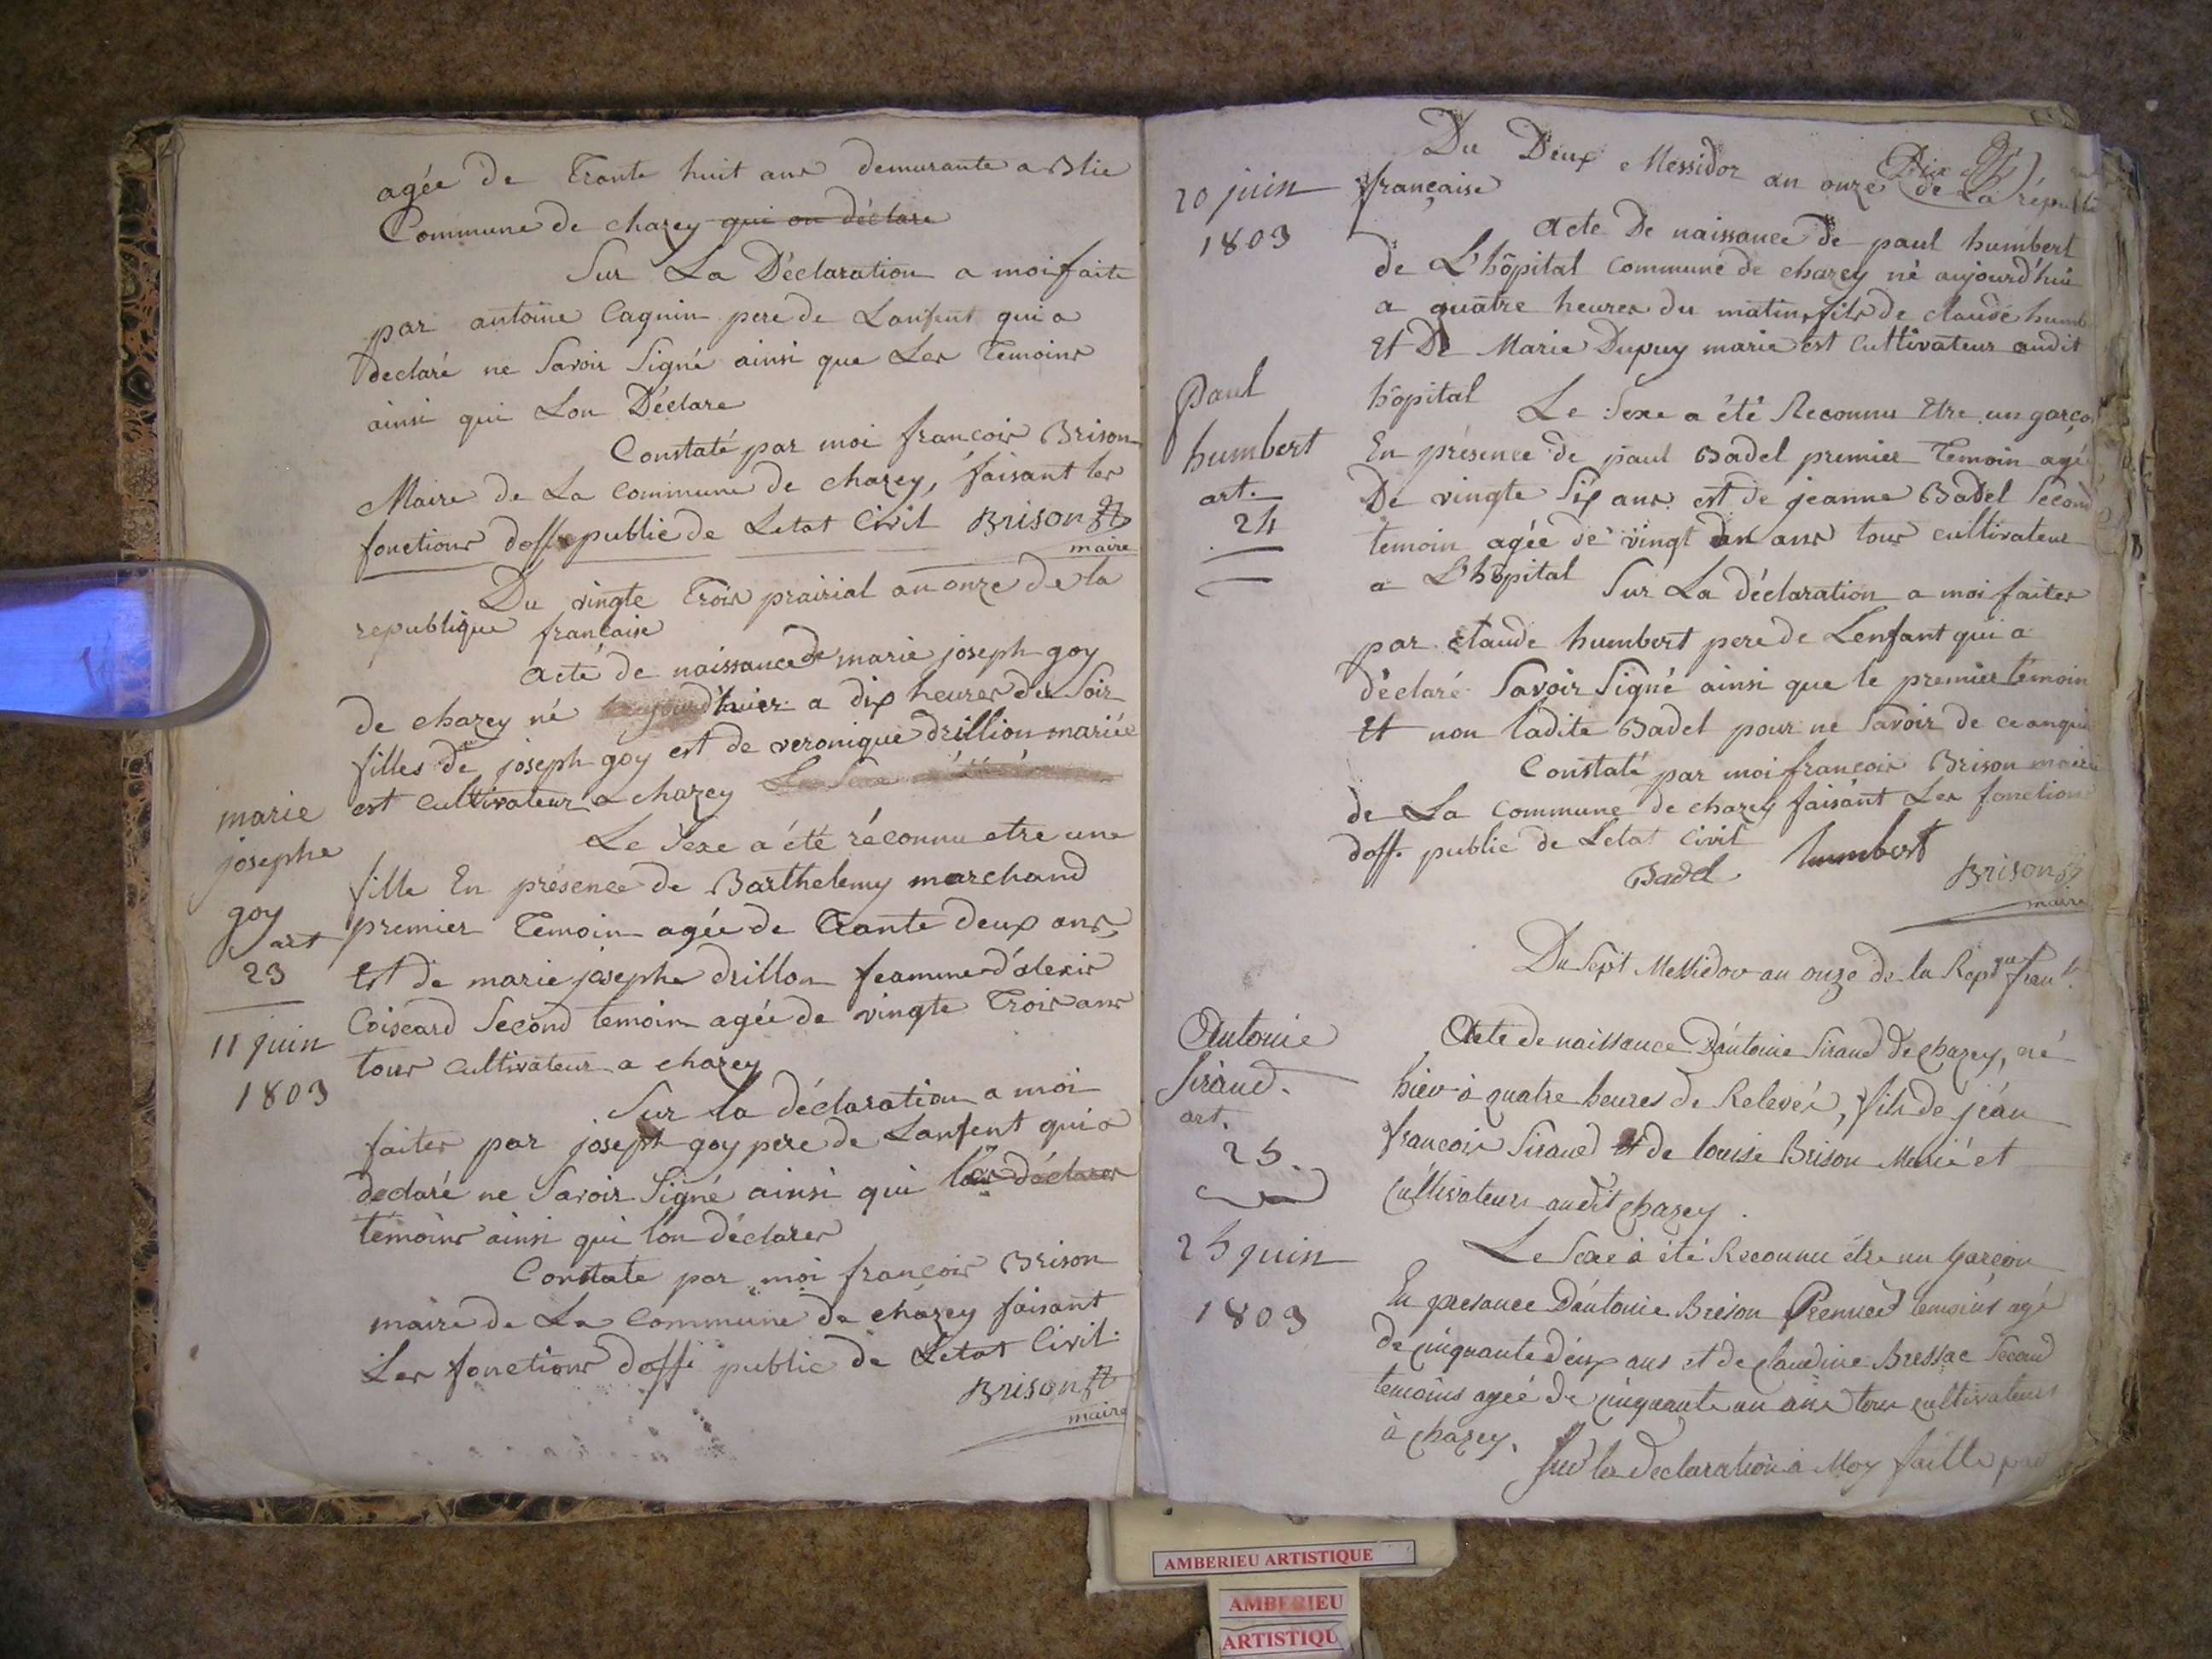 agée de Trante huit ans demurante a Blie
Commune de chazey qui on déclare
Sur La Déclaration a moi faite
par antoine Cagnin pere de Lanfent qui a
declaré ne Savoir Signé ainsi que Les Temoins
ainsi qui Lon Déclare
Constaté par moi françois Brison
Maire de La Commune de chazey, faisant les
fonctions doff public de Letat Civil Brison
maire
Du vingte Trois prairial an onze de la
republique française
acte de naissance de marie joseph goy
de chazey né hier a dix heures du Soir
filles de joseph goy est de veronique drillion mariée
est Cultivateur a chazey Le Sexe
Le Sexe a été réconnu etre une
fille En présence de Barthelemy marchand
premier Temoin agée de Trante deux ans
Est de marie josephe drillon feamme d'alexis
Coiscard Second temoin agée de vingte Trois ans
tous Cultivateur a chazey
Sur la déclaration a moi
faites par joseph goy pere de Lanfent qui a
declaré ne Savoir Signé ainsi qui
témoins ainsi qui lon déclares
Constate par moi françois Brison
maire de La Commune de chazey faisant
Les fonctions doffi public de Letat Civil.
Brison
maire
marie
josephe
goy
art
23
11 juin
1803
Du Deux Messidor an onze de La républi
française
20 juin
1803
acte De naissance de paul humbert
de L'hôpital Commune de chazey né aujourd'hui
a quatre heures du matin, fils de claude humb
Et De Marie Dupuy marie est Cultivateur audit
hôpital Le Sexe a été Reconnu Etre un garço
En présence de paul Badel premier Temoin agé
De vingte Six ans est de jeanne Badel Second
temoin agée de vingt ans tous cultivateur
a L'hôpital Sur La déclaration a moi faites
par claude humbert pere de Lenfant qui a
déclaré Savoir Signé ainsi que le premier témoin
Et non ladite Badel pour ne Savoir de ce anqui
Constaté par moi françois Brison maire
de La Commune de chazey faisant Les fonction
doff. public de Letat Civil
Badel humbert Brison
maire
paul
humbert
art.
24
Du Sept Messidor an onze de la Repque fran
Acte de naissance D'antoine Siraud de chazey, né
hier à quatre heures de Relevée, fils de jéan
françois Siraud et de louise Brison Marié et
Cultivateurs audit chazey.
Le Sexe à été Reconnu être un garçon
En presance D'antoine Brison Premier temoins agé
de cinquante deux ans et de claudine Bressac Second
temoins ageé de cinquante un ans tous cultivateurs
à chazey.
Sur la declaration à Moy faitte par
Antoine
Siraud.
art.
25.
25 juin
1803
AMBERIEU ARTISTIQUE
AMBERIEU
ARTISTIQU